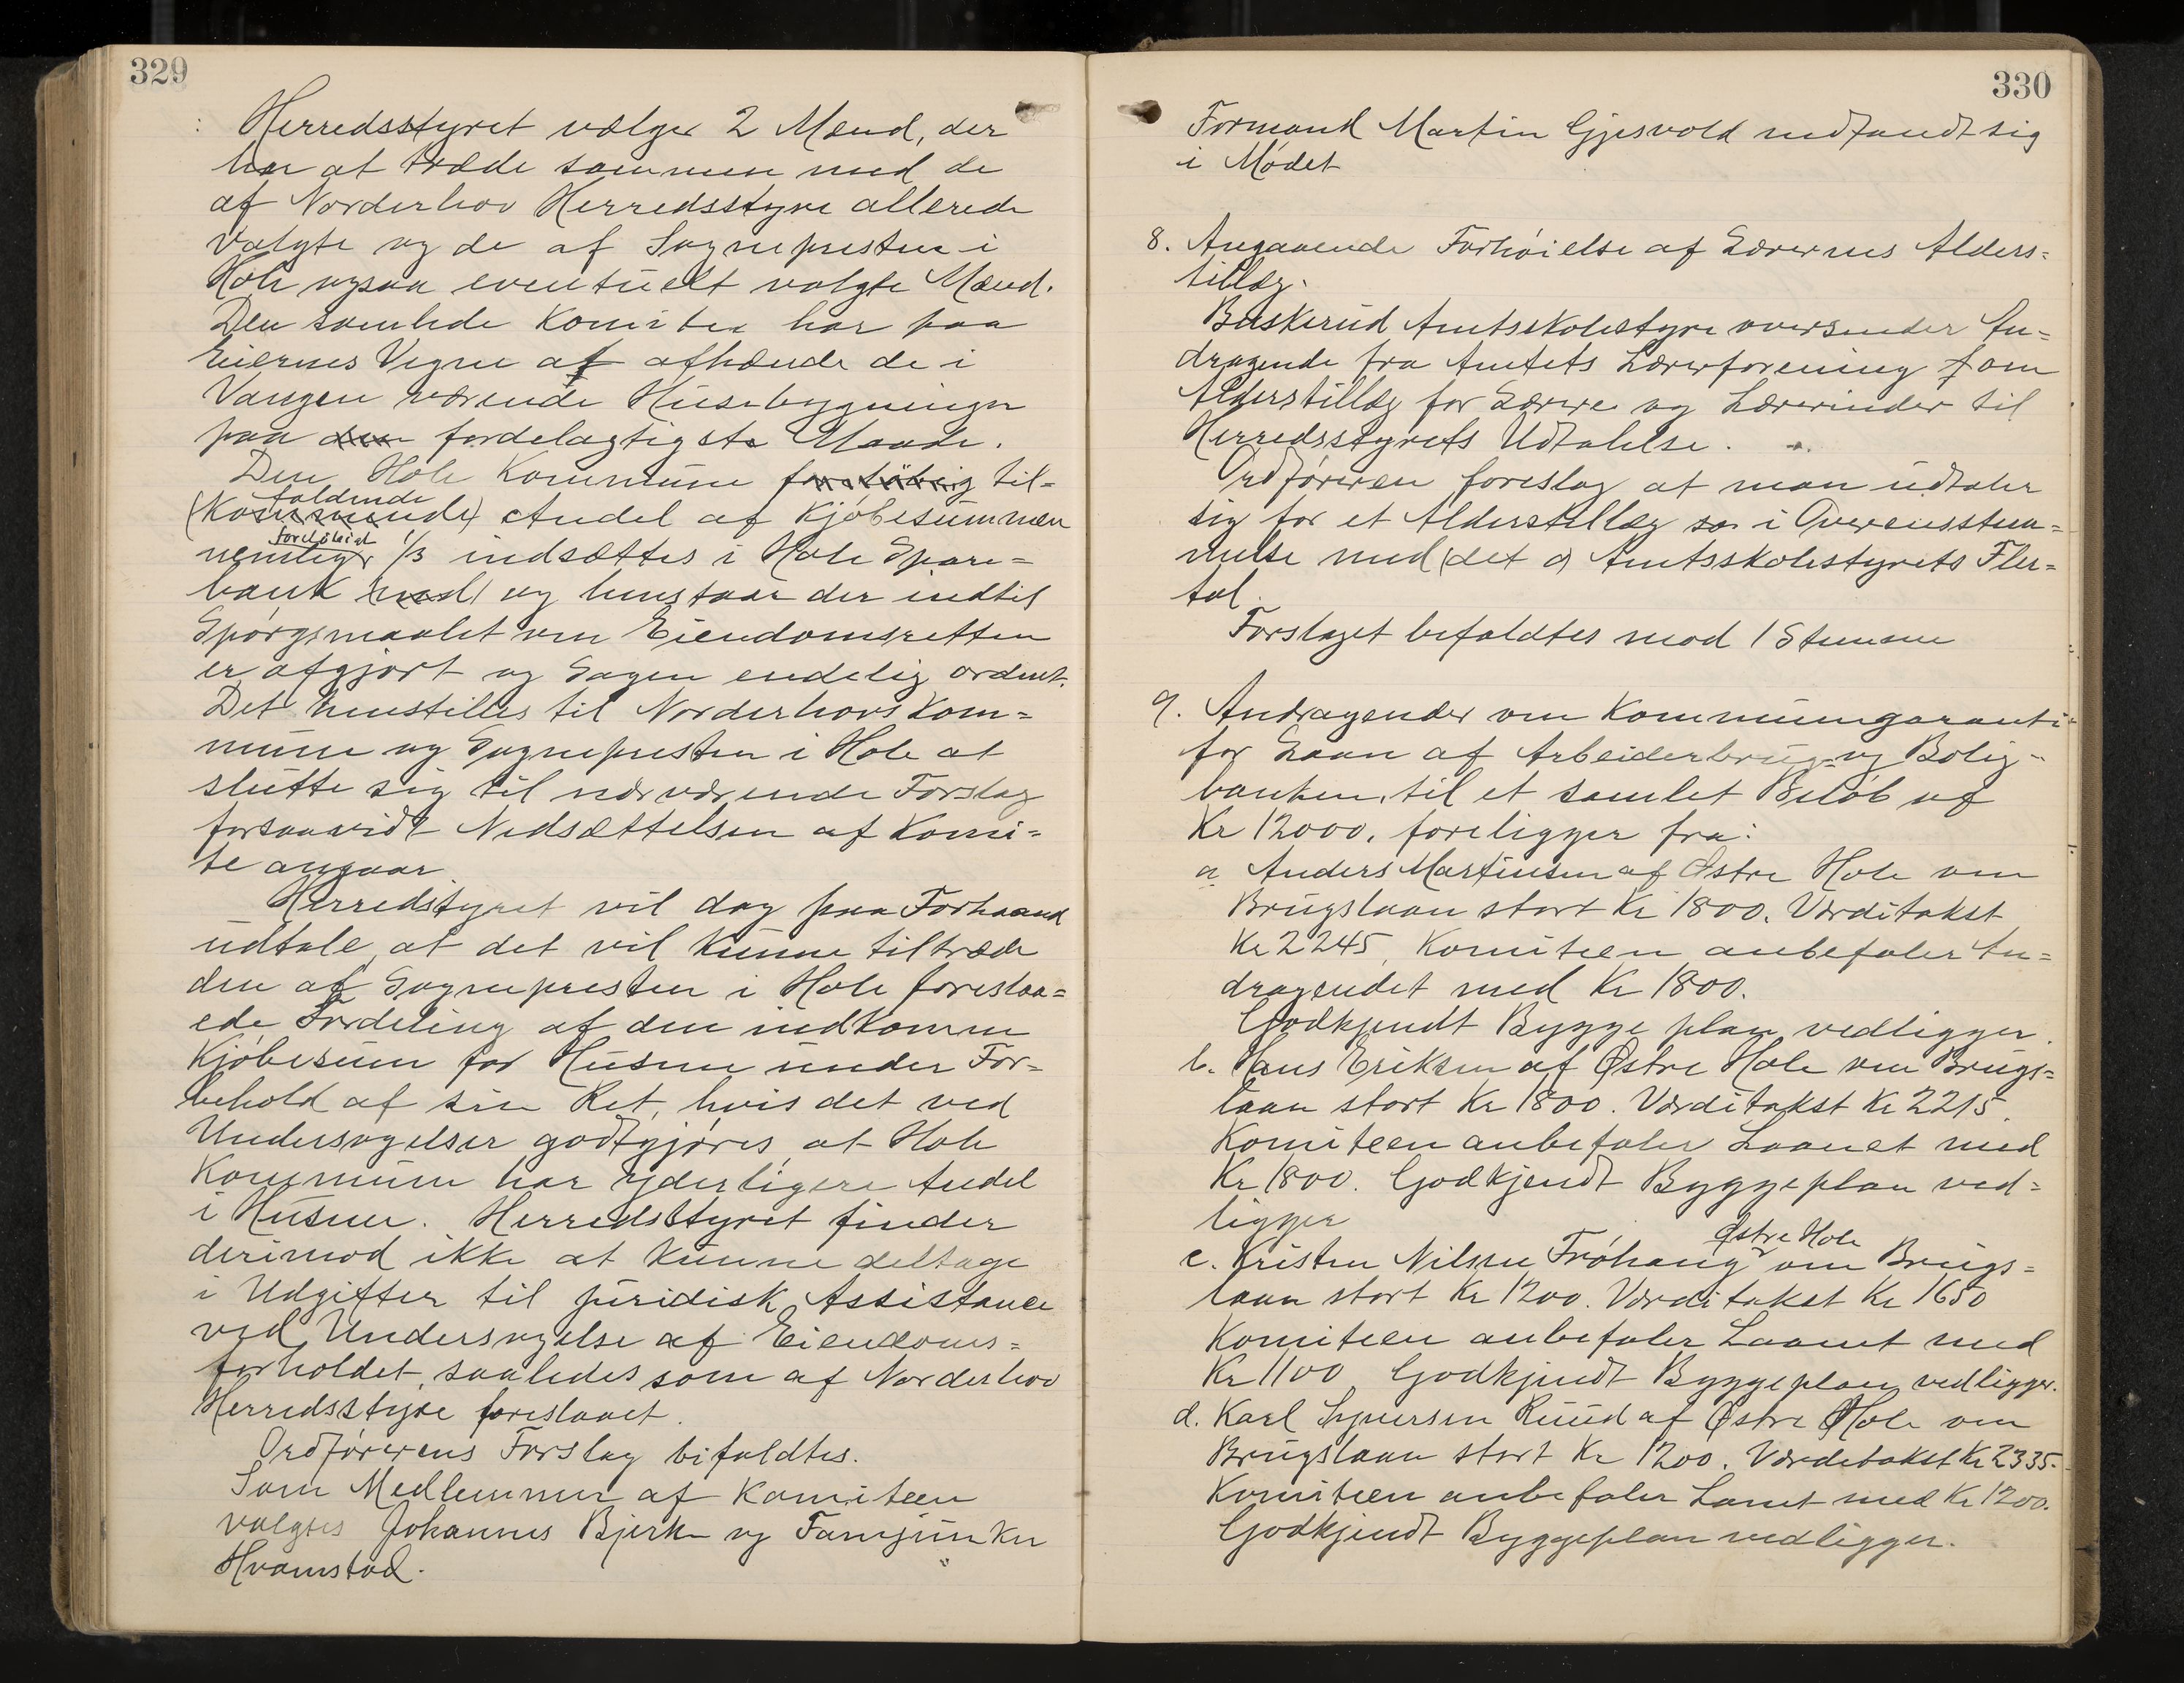 329
Herredsstyret vælger 2 Mænd, der
har at træde sammen med de
af Norderhov Herredsstyre allerede
valgte og de af Sognepresten i
Hole ogsaa eventuelt valgte Mænd.
Den samlede Komite har paa
Eiernes Vegne at afhænde de i
Vangen værende Husebygninger
paa den fordelagtigste Maade.
Den Hole Kommune til=
faldende
(Kommende) Andel af Kjøbesummen
foreløbigt
nemlig 1/3 indsættes i Hole Spare=
bank (med) og henstaar der indtil
Spørgsmaalet om Eiendomsretten
er afgjort og Sagen endelig ordnet.
Det henstilles til Norderhovs Kom=
mune og Sognepresten i Hole at
slutte sig til nærværende Forslag
forsaavidt Nedsættelsen af Komi=
te angaar
Herredstyret vil dog paa Forhaand
udtale, at det vil kunne tiltræde
den af Sognepresten i Hole foreslaa=
ede Fordeling af den indkomne
Kjøbesum for Husene under For=
behold af sin Ret, hvis det ved
Undersøgelser godtgjøres, at Hole
Kommune har yderligere Andel
i Husene. Herredsstyret finder
derimod ikke at kunne deltage
i Udgifter til juridisk Assistance
ved Undersøgelse af Eiendoms=
forholdet, saaledes som af Norderhov
Herredsstyre foreslaaet.
Ordførerens Forslag bifaldtes.
Som Medlemmer af Komiteen
valgtes Johannes Bjerke og Fanejunker
Hvamstad.
330
Formand Martin Gjesvold indfandt sig
i Mødet
8. Angaaende Forhøielse af Lærernes Alders=
tillæg.
Buskerud Amtsskolestyre oversender An=
dragende fra Amtets Lærerforening om
Alderstillæg for Lærere og Lærerinder til
Herredsstyrets Udtalelse.
Ordføreren foreslog at man udtaler
sig for et Alderstillæg i Overensstem=
melse med (det a) Amtsskolestyrets Fler=
tal.
Forslaget bifaldtes mod 1 Stemme
9. Andragender om Kommunegaranti
for Laan af Arbeiderbrug- og Bolig-
banken, til et samlet Beløb af
Kr 12000, foreligger fra:
a Anders Martinsen af Østre Hole om
Brugslaan stort Kr 1800. Værditakst
Kr 2245, Komiteen anbefaler An=
dragendet med Kr 1800.
Godkjendt Byggeplan vedligger.
b. Hans Eriksen af Østre Hole om Brugs=
laan stort Kr 1800. Værditakst Kr 2215.
Komiteen anbefaler Laanet med
Kr 1800. Godkjendt Byggeplan ved=
ligger
Østre Hole
c. Kristen Nilsen Frøhaug om Brugs=
laan stort Kr 1200. Værditakst Kr 1650
Komiteen anbefaler Laanet med
Kr 1100 Godkjendt Byggeplan vedligger.
d. Karl Syversen Ruud af Østre Hole om
Brugslaan stort Kr 1200. Værditakst Kr 2335.
Komiteen anbefaler Lanet med Kr 1200.
Godkjendt Byggeplan vedligger.